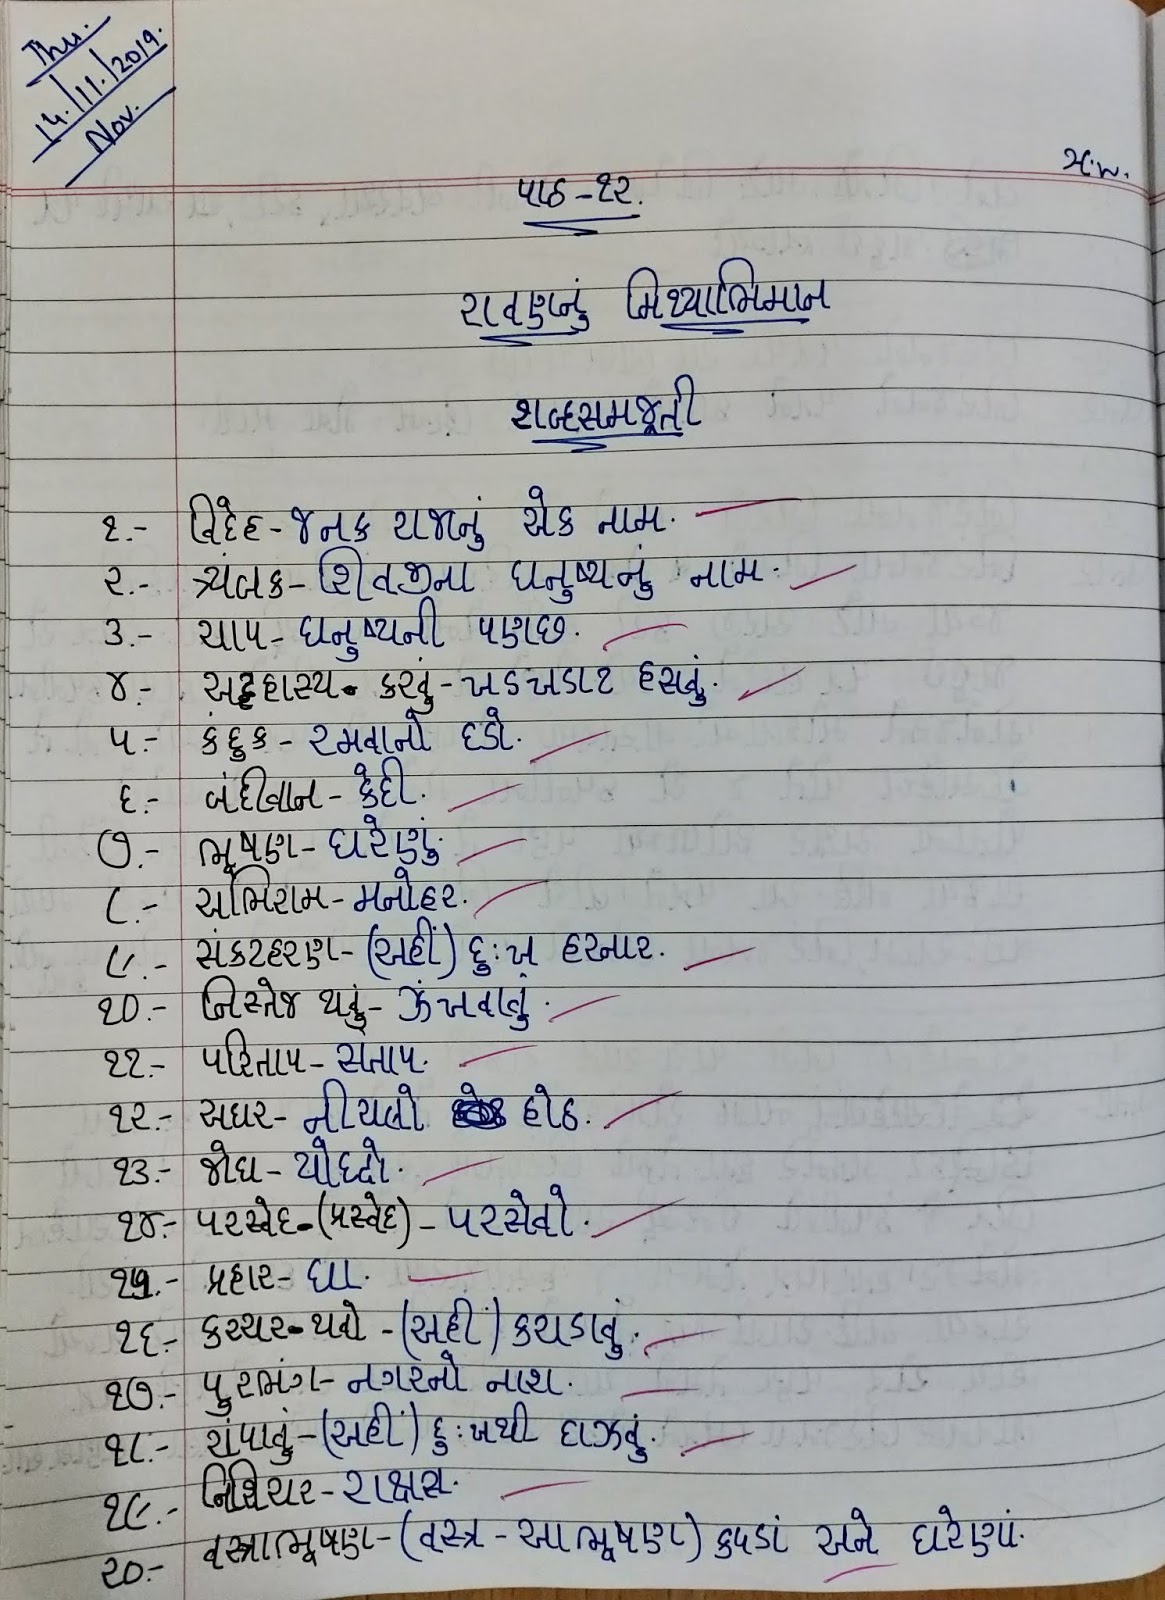 Thu.
14/11/2019.
Nov.
H.W.
પાઠ-૧૨.
રાવણનું મિથ્યાભિમાન
શબ્દસમજૂતી
૧.- વિદેહ-જનક રાજાનું એક નામ.
૨.- ત્ર્યંબક-શિવજીના ધનુષ્યનું નામ.
૩.- ચાપ-ધનુષ્યની પણછ.
૪.- અટ્ટહાસ્ય- કરવું-ખડખડાટ હસવું.
૫.- કંદુક-રમવાનો દડો.
૬.- બંદીવાન-કેદી.
૭.- ભૂષણ-ઘરેણું.
૮.- અભિરામ-મનોહર.
૯.- સંકટહરણ-(અહીં) દુઃખ હરનાર.
૧૦.- નિસ્તેજ થવું-ઝંખવાવું.
૧૧.- પરિતાપ-સંતાપ.
૧૨.- અધર-નીચલો હોઠ.
૧૩.- જોધ-યોદ્ધો.
૧૪.- પરસ્વેદ-(પ્રસ્વેદ)-પરસેવો.
૧૫.- પ્રહાર-ઘા.
૧૬.- કચ્ચર-થવો-(અહીં) કચડાવું.
૧૭.- પુરભંગ-નગરનો નાશ.
૧૮.- રાંપાવું-(અહીં) દુઃખથી દાઝવું.
૧૯.- નિશિચર-રાક્ષસ.
૨૦.- વસ્ત્રાભૂષણ-(વસ્ત્ર-આભૂષણ) કપડાં અને ઘરેણાં.